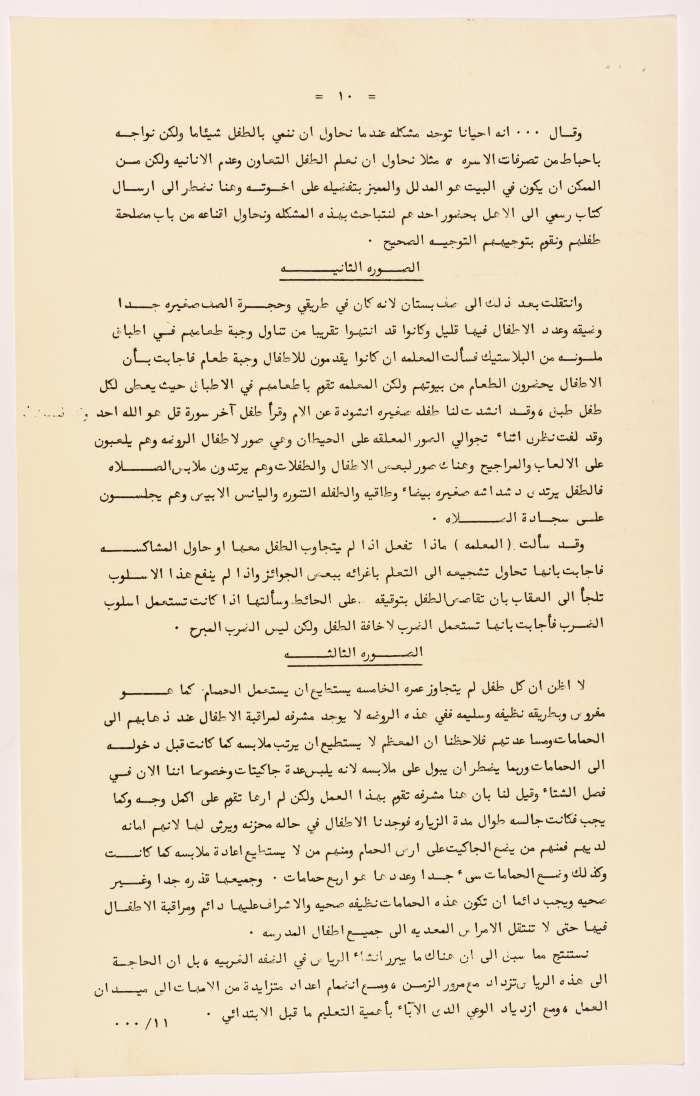 = ١٠ =
وقـال ٠٠٠ انه احيانا توجد مشكله عندما نحاول ان ننمي بالطفل شيئاما ولكن نواجـه
باحباط من تصرفات الاسره ، مثلا نحاول ان نعلم الطفل التعاون وعدم الانانيه ولكن مـن
الممكن ان يكون في البيت هو المدلل والمميز بتفضيله على اخوتـه وهنا نضطر الى ارسـال
كتاب رسمي الى الاهل بحضور احدهم لنتباحث بهذه المشكله ونحاول اقناعه من باب مصلحة
طفلهم ونقوم بتوجيههم التوجيـه الصحيح ٠
الصـوره الثانيـه
وانتقلت بعد ذلك الى صف بستان لانه كان في طريقي وحجـرة الصف صغيره جـدا
وضيقه وعدد الاطفال فيها قليل وكانوا قد انتهوا تقريبا من تناول وجبة طعامهم فـي اطباق
ملـونـه من البلاستيك فسألت المعلمه ان كانوا يقدمون للاطفال وجبة طعام فاجابت بـأن
الاطفال يحضرون الطعام من بيوتهم ولكن المعلمه تقوم باطعامهم في الاطباق حيث يعطى لكل
طفل طبق ، وقـد انشدت لنا طفله صغيره انشودة عن الام وقرأ طفل آخر سورة قل هو الله احد
وقد لفت نظرى اثناء تجوالي الصور المعلقه على الحيطان وهي صور لاطفال الروضه وهم يلعبون
على الالعاب والمراجيح وهناك صور لبعض الاطفال والطفلات وهم يرتدون ملابس الصـلاه
فالطفل يرتدى دشداشه صغيره بيضاء وطاقيه والطفله التنوره واليانس الابيض وهم يجلسـون
علـى سجـادة الصـلاه ٠
وقـد سألت (المعلمه) ماذا تفعل اذا لم يتجاوب الطفل معها او حاول المشاكسـه
فاجابت بانها تحاول تشجيعه الى التعلم باغرائه ببعض الجوائز واذا لم ينفع هذا الاسلوب
تلجأ الى العقاب بان تقاصص الطفل بتوقيفه على الحائط وسألتها اذا كانت تستعمل اسلوب
الضرب فأجابت بانها تستعمل الضرب لاخافة الطفل ولكن ليس الضرب المبرح ٠
الصـوره الثالثـه
لا اظن ان كل طفل لم يتجاوز عمره الخامسه يستطيع ان يستعمل الحمام كما هـو
مفروض وبطريقه نظيفه وسليمه ففي هذه الروضه لا يوجد مشرفه لمراقبة الاطفال عند ذهابهم الى
الحمامات ومساعدتهم فلاحظنا ان المعظم لا يستطيع ان يرتب ملابسه كما كانت قبل دخولـه
الى الحمامات وربما يضطر ان يبول على ملابسه لانه يلبس عدة جاكيتات وخصوصا اننا الان فـي
فصل الشتاء وقيل لنا بان هنا مشرفه تقوم بهذا العمل ولكن لم ارها تقوم على اكمل وجـه وكما
يجب فكانت جالسه طوال مدة الزياره فوجدنا الاطفال في حاله محزنه ويرثى لها لانهم امانه
لديهم فمنهم من يضع الجاكيت على ارض الحمام ومنهم من لا يستطيع اعادة ملابسه كما كانـت
وكذلك وضـع الحمامات سيء جـدا وعددها هو اربع حمامات ٠ وجميعها قذره جدا وغـير
صحيه ويجب دائما ان تكون هذه الحمامات نظيفه صحيه والاشراف عليها دائم ومراقبة الاطفـال
فيها حتى لا تنتقل الامراض المعديه الى جميـع اطفال المدرسه ٠
نستنتج مما سبق الى ان هناك ما يبرر انشاء الرياض في الضفه الغربيه ، بل ان الحاجـة
الى هذه الرياض تزداد مع مرور الزمـن ، ومـع انضمام اعداد متزايدة من الامهات الى ميـدان
العمل ، ومع ازدياد الوعي الدى الآباء بأهمية التعليم ما قبل الابتدائي ٠
٠٠٠ /١١